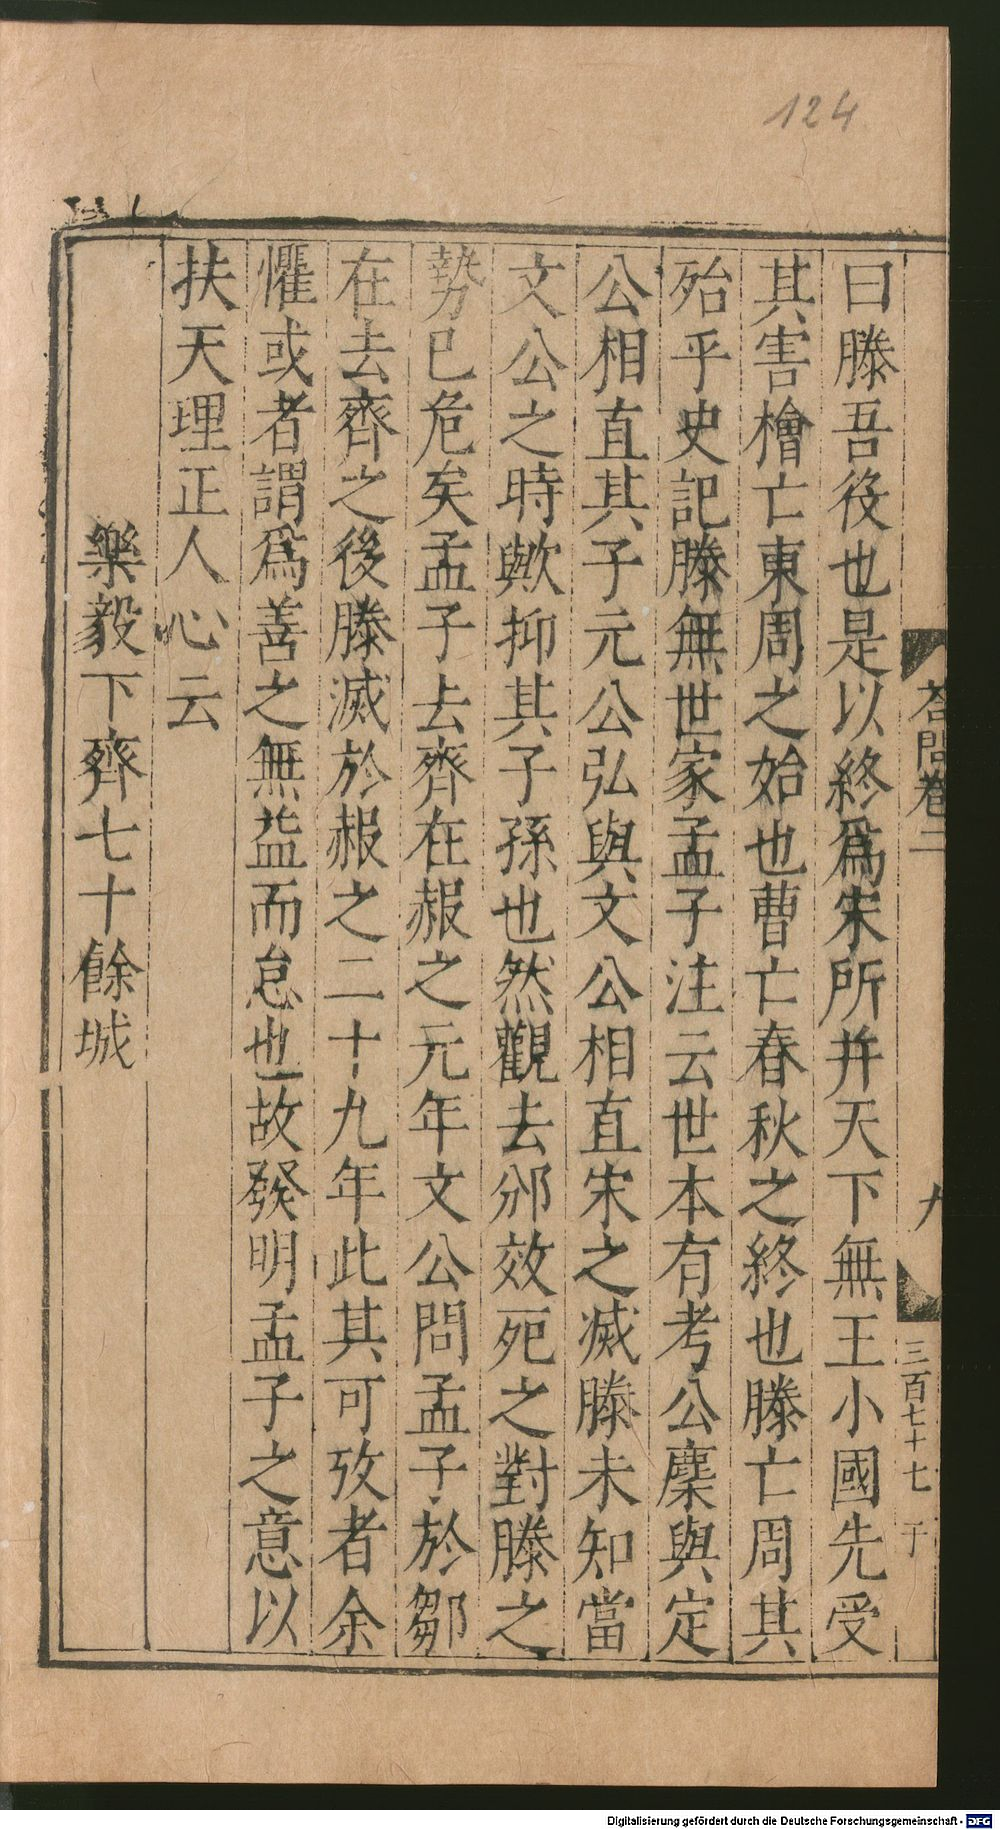 124
答問卷二
九
三百七十七
曰滕吾役也是以終爲宋所并天下無王小國先受
其害檜亡東周之始也曹亡春秋之終也滕亡周其
殆乎史記滕無世家孟子注云世本有考公麋與定
公相直其子元公弘與文公相直宋之滅滕未知當
文公之時歟抑其子孫也然觀去邠效死之對滕之
勢已危矣孟子去齊在赧之元年文公問孟子於鄒
在去齊之後滕滅於赧之二十九年此其可攷者余
懼或者謂爲善之無益而怠也故發明孟子之意以
扶天理正人心云
樂毅下齊七十餘城
Digitalisierung gefördert durch die Deutsche Forschungsgemeinschaft - DFG